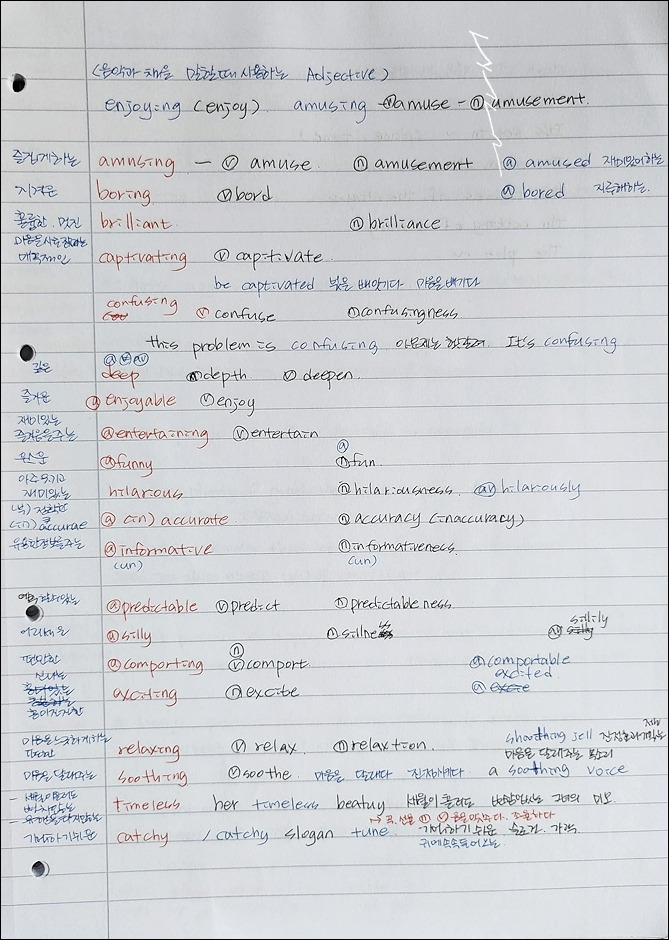 (음악과 책을 말할때 사용하는 Adjective)
enjoying (enjoy). amusing ⓥamuse - ⓝ amusement.
즐겁게하는 amusing — ⓥ amuse. ⓝ amusement ⓐ amused 재미있어하는
지겨운 boring ⓥbord ⓐ bored 지루해하는.
훌륭한. 멋진 brilliant. ⓝ brilliance
마음을사로잡는
매력적인 captivating ⓥ captivate.
be captivated 넋을 빼앗기다 마음을뺏기다
confusing ⓥ confuse ⓝconfusingness
this problem is confusing 이문제는 헷갈려. It's confusing
깊은 ⓐ ⓝ ⓐⓥ
deep ⓝdepth. ⓥ deepen.
즐거운 ⓐ enjoyable ⓥenjoy
재미있는
즐거움을주는 ⓐentertaining ⓥentertain
우스운 ⓐfunny ⓐ ⓝfun.
아주웃기고
재미있는 hilarious ⓝhilariousness. ⓐⓥ hilariously
부) 정확한
(in) accurae ⓐ (in) accurate ⓝ accuracy (inaccuracy)
유용한정보를주는 ⓐinformative ⓝinformativeness.
(un) (un)
예측할수있는 ⓐpredictable ⓥpredict ⓝpredictableness
어리석은 ⓐsilly ⓝsillness ⓐⓥ sillily
편안한 ⓐcomporting ⓝ ⓥcomport ⓐcomportable
신나는 exciting ⓝexcite ⓐ excited.
흥미진진한
마음을느긋하게하는 relaxing ⓥ relax ⓝrelaxtion. shoothing jell 진정효과있는 젤
마음을 달래주는 목소리
마음을 달래주는 soothing ⓥsoothe. 마음을 달래다 진정시키다 a soothing voice
세월이흘러도
변치않는 timeless her timeless beatuy 세월이 흘러도 변함없는 그녀의 미모.
→ 곡. 선율 ⓝ ⓥ 음을맞추다. 조율하다
기억하기쉬운 catchy / catchy slogan tune. 기억하기 쉬운 슬로건. 가락
귀에쏙쏙들어오는.